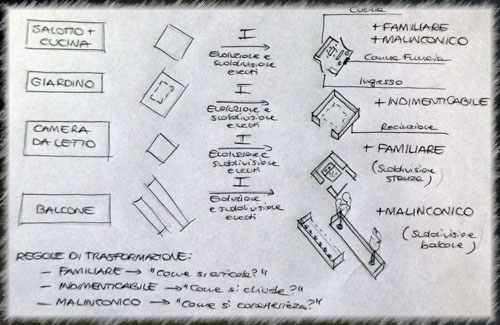 SALOTTO +
CUCINA
I
Evoluzione e
suddivisione
eventi
Cucina
+ FAMILIARE
+ MALINCONICO
Canna Fumaria
Ingresso
GIARDINO
I
Evoluzione e
suddivisione
eventi
+ INDIMENTICABILE
Recinzione
CAMERA
DA LETTO
I
Evoluzione e
suddivisione
eventi
+ FAMILIARE
(Suddivisione
stanza)
BALCONE
I
Evoluzione e
suddivisione
eventi
+ MALINCONICO
(Suddivisione
balcone)
REGOLE DI TRASFORMAZIONE:
— FAMILIARE → "Come si articola?"
— INDIMENTICABILE → "Come si chiude?"
— MALINCONICO → "Come si caratterizza?"